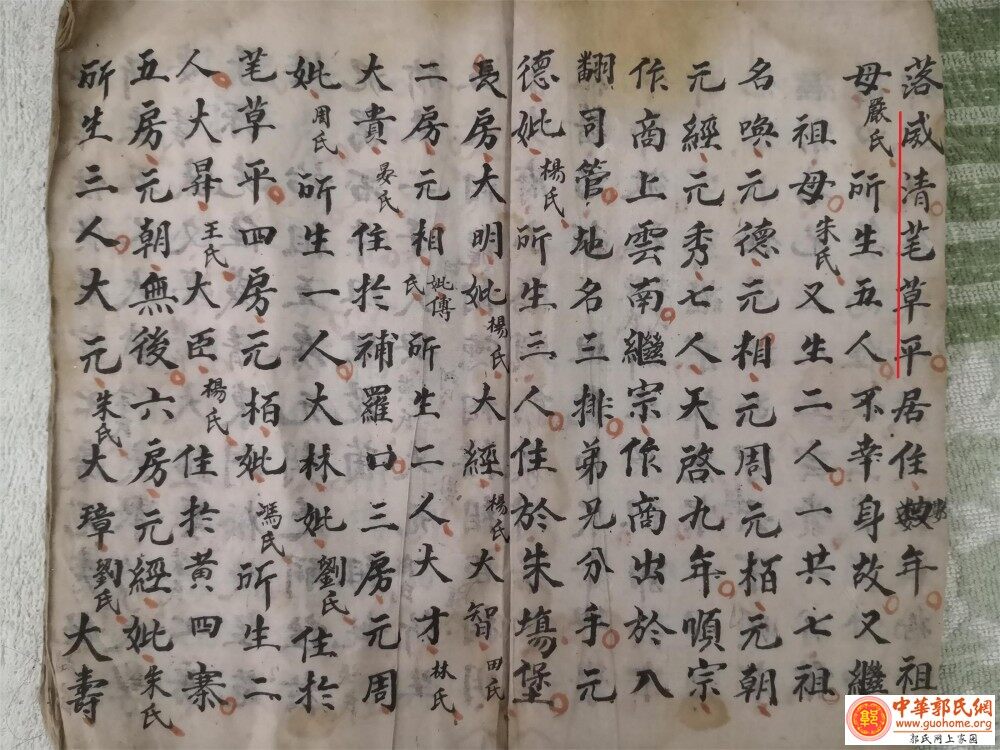 落威清茅草平居住數年祖
母嚴氏所生五人不幸身故又繼
祖母朱氏又生二人一共七祖
名喚元德元相元周元栢元朝
元經元秀七人天啓九年順宗
作商上雲南繼宗作商出於入
翻司管地名三排弟兄分手元
德妣楊氏所生三人住於朱塲堡
長房大明妣楊氏大經楊氏大智田氏
二房元相妣傅氏所生二人大才林氏
大貴晏氏住於補羅口三房元周
妣周氏所生一人大林妣劉氏住於
茅草平四房元栢妣馮氏所生二
人大昇王氏大臣楊氏住於黄四寨
五房元朝無後六房元經妣朱氏
所生三人大元朱氏大璋劉氏大壽
中華郭氏網
www.guohome.org
郭氏网上家园